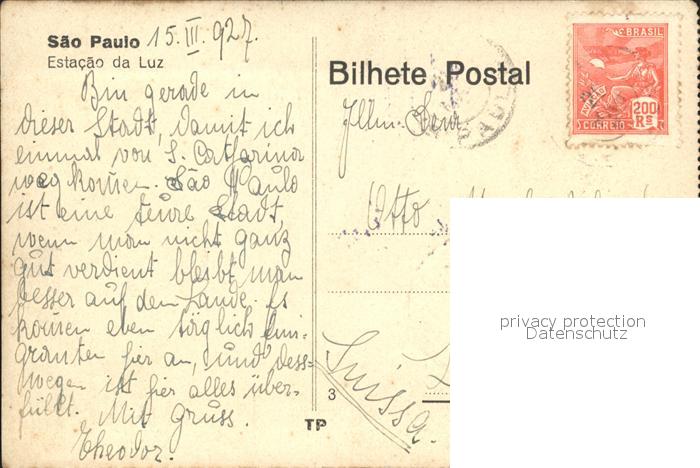 São Paulo 15.III.927.
Estação da Luz
Bilhete Postal
BRASIL
AVIAÇÃO
200
RS
CORREIO
Bin gerade in
dieser Stadt, damit ich
einmal von S. Catharina
weg komen. São Paulo
ist eine teure Stadt,
wenn man nicht ganz
gut verdient bleibt man
besser auf dem Lande. Es
komen eben täglich Emi-
granten hier an, und dess-
wegen ist hier alles über-
füllt. Mit Gruss.
Theodor.
Illm. Senr.
Otto
Suissa.
3
TP
privacy protection
Datenschutz